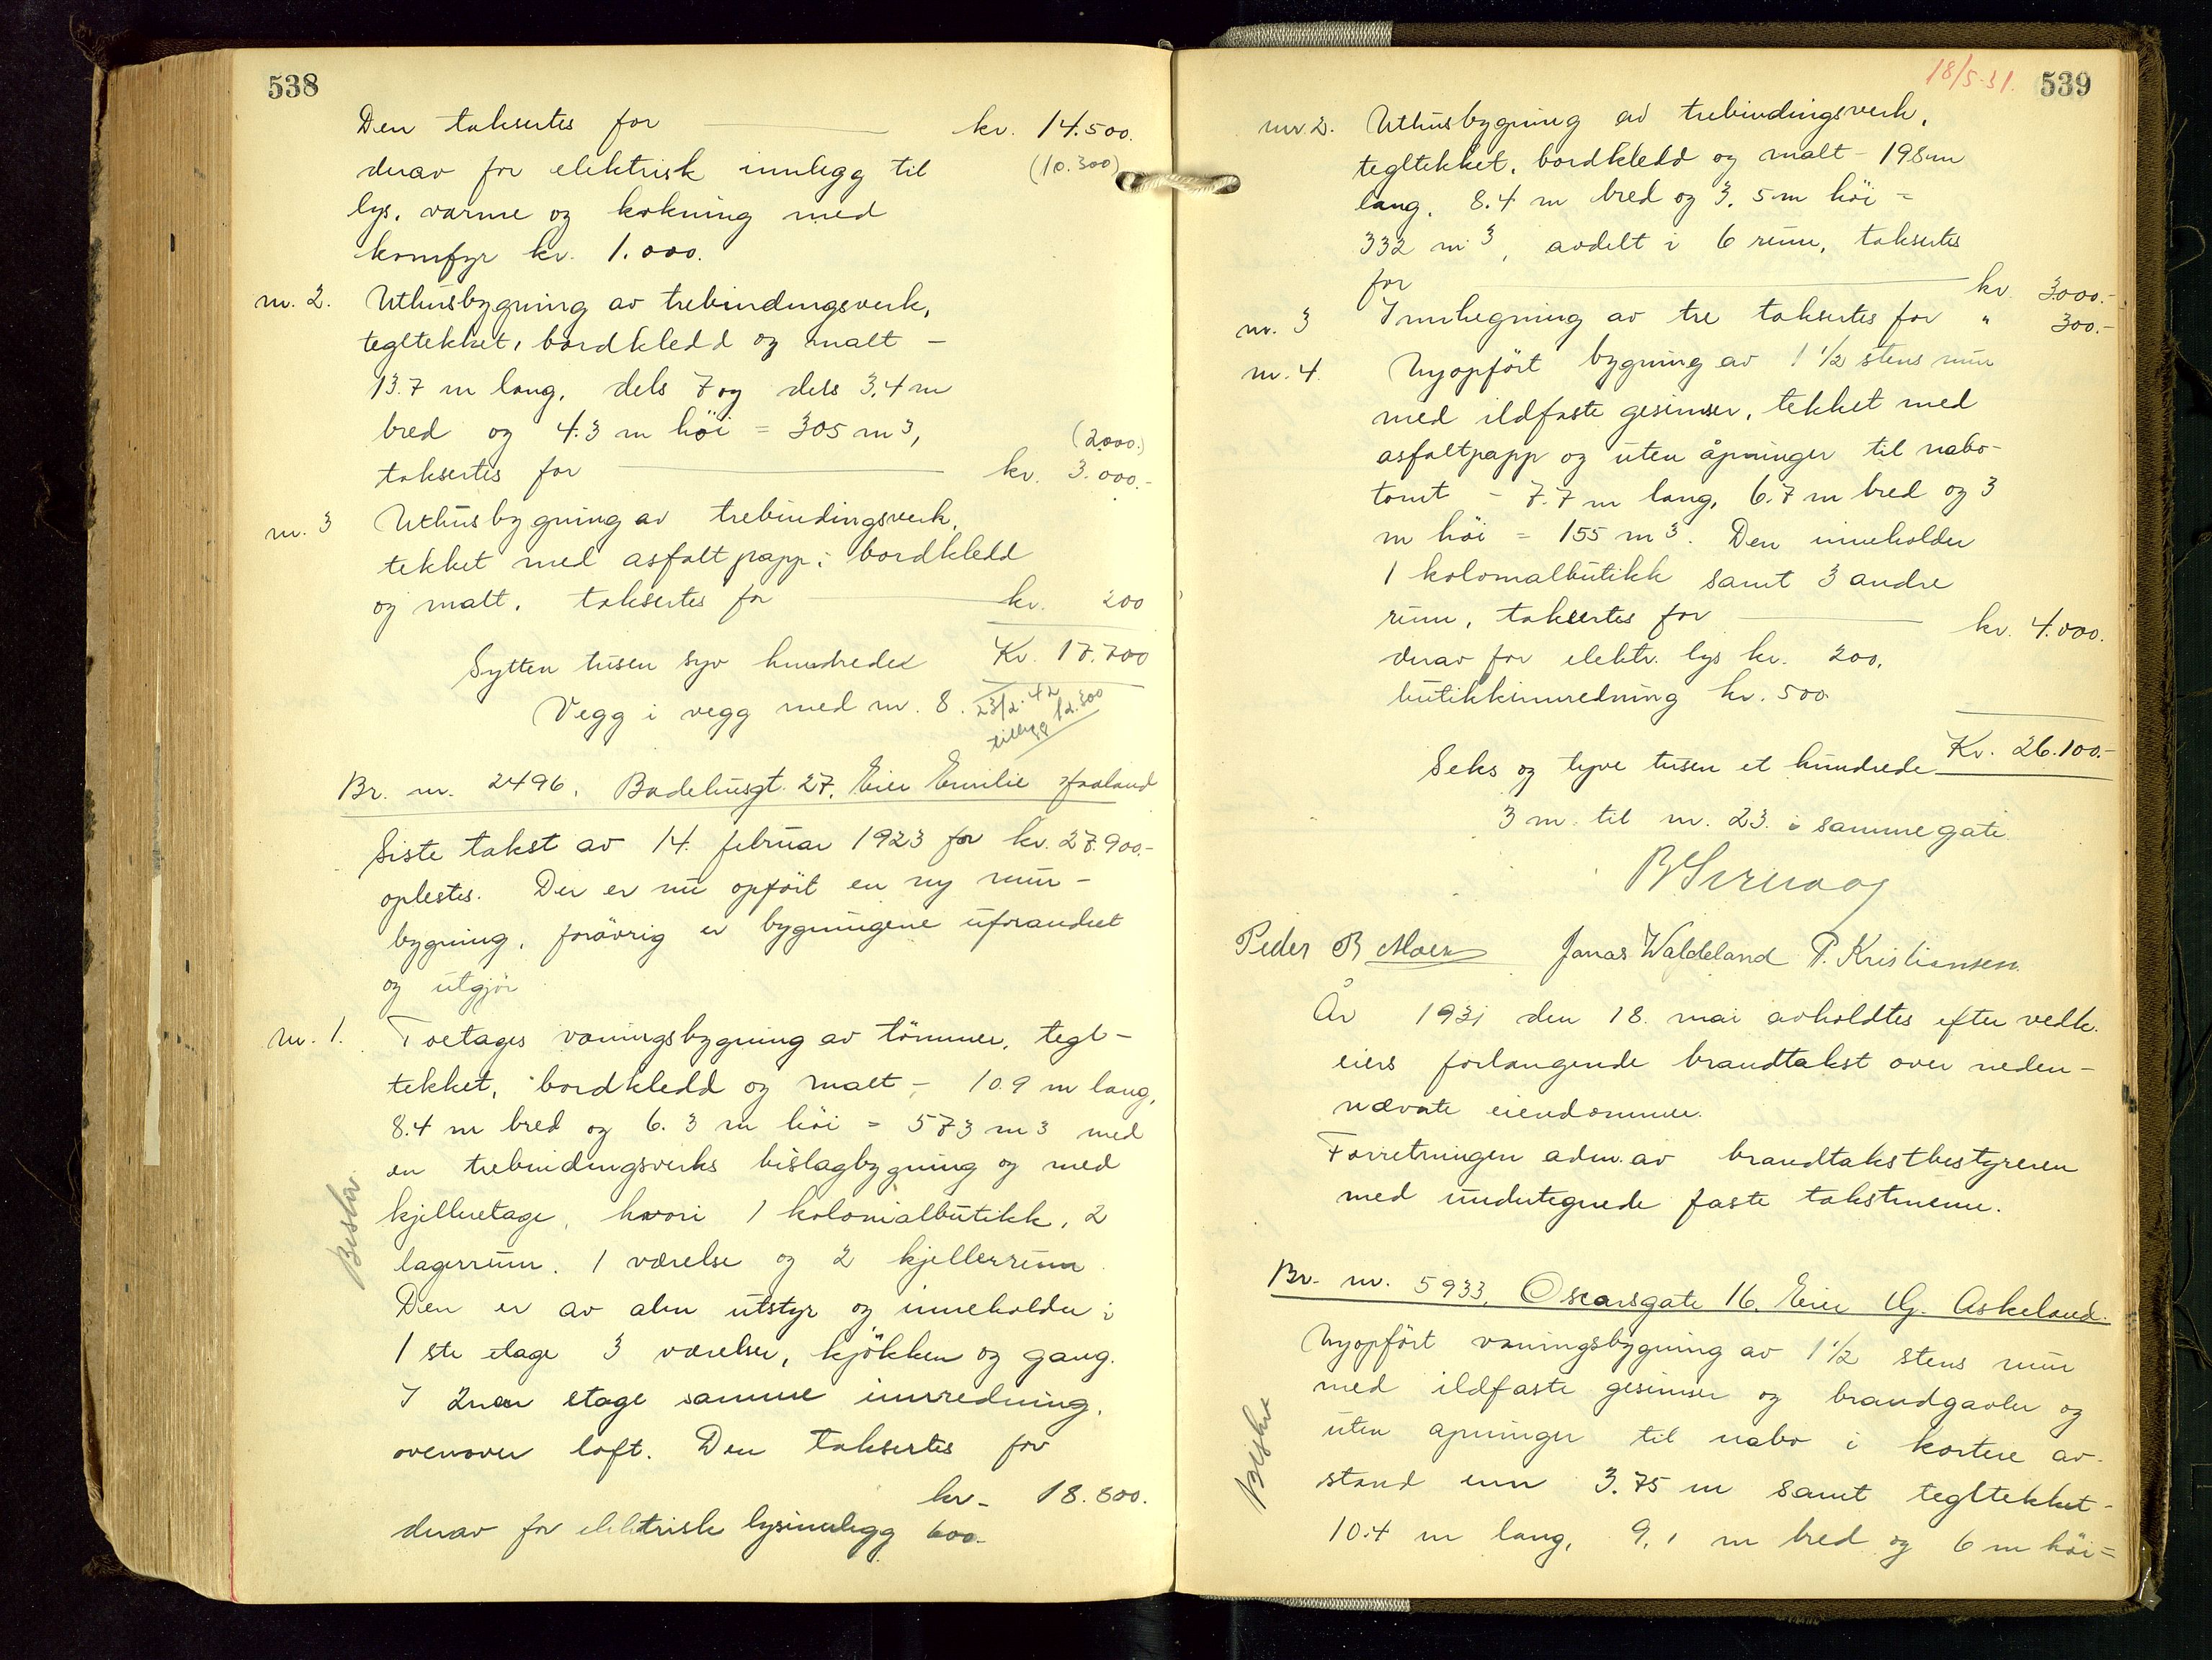 538
Den taksertes for kr. 14.500.
derav for elektrisk innlegg til (10.300)
lys, varme og kokning med
komfyr kr. 1.000.
nr. 2. Uthusbygning av trebindingsverk,
tegltekket, bordkledd og malt -
13.7 m lang, dels 7 og dels 3.4 m
bred og 4.3 m höi = 305 m3, (2000.)
taksertes for kr. 3.000.-
nr. 3 Uthusbygning av trebindingsverk,
tekket med asfaltpapp, bordkledd
og malt, taksertes for kr. 200
Sytten tusen syv hundrede Kr. 17.700
Vegg i vegg med nr. 8. 23/2.42
tillegg 12.300
Br. nr. 2496. Badehusgt. 27. Eier Emilie Haaland
Siste takst av 14. februar 1923 for kr. 27.900.-
oplestes. Der er nu opfört en ny mur-
bygning, forövrig er bygningene uforandret
og utgjör
nr. 1. Toetages våningsbygning av tömmer, tegl-
tekket, bordkledd og malt - 10.9 m lang,
8.4 m bred og 6.3 m höi = 573 m3 med
en trebindingsverks bislagbygning og med
kjelleretage, hvori 1 kolonialbutikk, 2
lagerrum, 1 værelse og 2 kjellerrum.
Den er av alm utstyr og inneholder i
1ste etage 3 værelser, kjökken og gang.
I 2nen etage samme innredning,
ovenover loft. Den taksertes for
kr. 18.800.
derav for elektrisk lysinnlegg 600.-
18/5-31. 539
nr 2. Uthusbygning av trebindingsverk,
tegltekket, bordkledd og malt - 19.8 m
lang, 8.4 m bred og 3.5 m höi =
332 m3, avdelt i 6 rum, taksertes
for kr. 3000.-
nr. 3 Innhegning av tre taksertes for " 300.-
nr. 4. Nyopfört bygning av 1 1/2 stens mur
med ildfaste gesimser, tekket med
asfaltpapp og uten åpninger til nabo-
tomt - 7.7 m lang, 6.7 m bred og 3
m höi = 155 m3. Den inneholder
1 kolonialbutikk samt 3 andre
rum, taksertes for kr. 4.000.
derav for elektr. lys kr. 200,
butikkinnredning kr. 500.
Kr. 26.100.-
Seks og tyve tusen et hundrede
3 m. til nr. 23. i samme gate.
Peder B Moen Jonas Waldeland P. Kristiansen.
År 1931 den 18. mai avholdtes efter vedk.
eiers forlangende brandtakst over neden-
nævnte eiendommer.
Forretningen adm. av brandtakstbestyreren
med undertegnede faste takstmenn.
Br. nr. 5933. Oscarsgate 16. Eier Askeland.
Nyopfört våningsbygning av 1 1/2 stens mur
med ildfaste gesimser og brandgavler og
uten åpninger til nabo i kortere av-
stand enn 3.75 m samt tegltekket -
10.4 m lang, 9.1 m bred og 6 m höi =